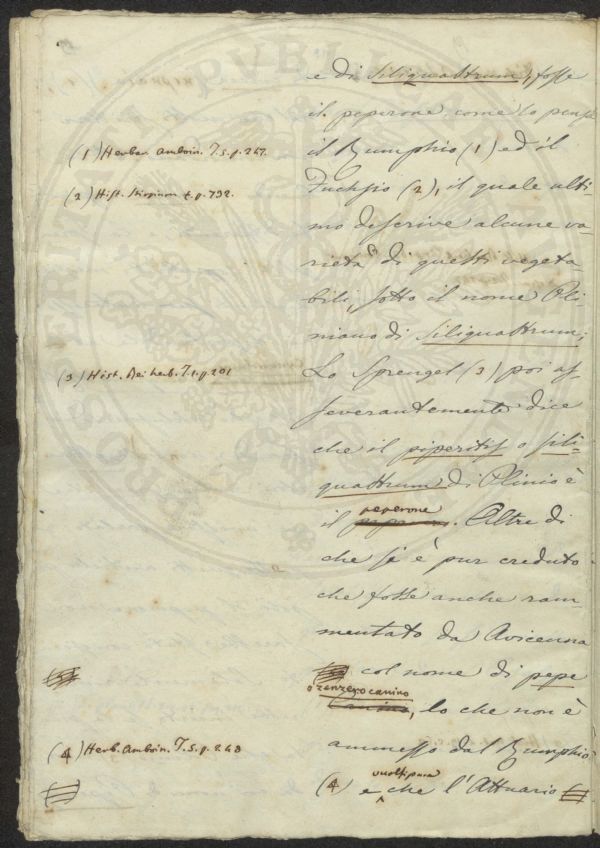 e di siliquastrum, fosse
il peperone, come lo pensò
(1) Herbar. Amboin. T. 5. p. 247.
il Rumphio (1) ed il
(2) Hist. Stirpium p. 732.
Fuchsio (2), il quale ulti-
mo descrive alcune va-
rietà di questi vegeta-
bili, sotto il nome Pli-
niano di siliquastrum;
(3) Hist. Rei herb. T. 1. p. 201
Lo Sprengel (3) poi as-
severantemente dice
che il piperitis o sili-
quastrum di Plinio è
il peperone. Altre di
che si è pur creduto
che fosse anche ram-
mentato da Avicenna
col nome di pepe
o zenzero canino
canino, lo che non è
(4) Herb. Amboin. T. 5. p. 248
ammesso dal Rumphio
(4) e vuolsi pure che l'Attuario